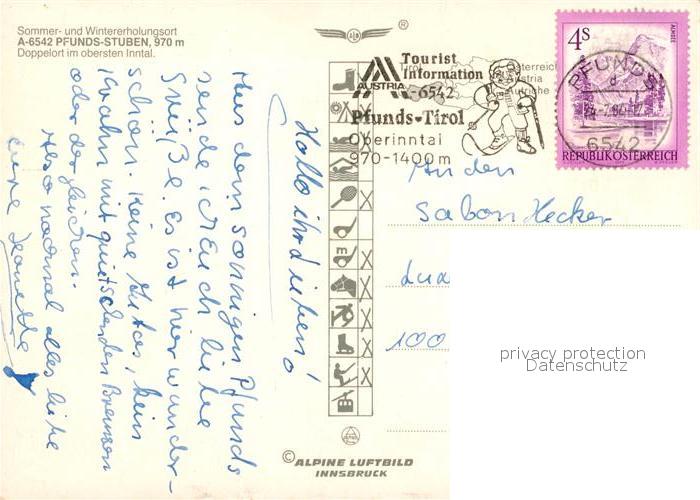 Sommer- und Wintererholungsort
A-6542 PFUNDS-STUBEN, 970 m
Doppelort im obersten Inntal.
Hallo ihr Lieben!
Aus dem sonnigen Pfunds
sende ich Euch liebe
Grüße. Es ist hier wunder-
schön. Keine Autos, kein
mit quietschenden Bremsen
oder dergleichen.
Also nochmal alles liebe
Eure Jeanette
Tourist
Information
AUSTRIA
A-6542
Pfunds-Tirol
Oberinntal
970-1400m
Tirol
Österreich
Austria
Autriche
4S
ALMSEE
REPUBLIK ÖSTERREICH
PFUNDS
d
6542
An den
Salon Hecker
100
privacy protection
Datenschutz
© ALPINE LUFTBILD
INNSBRUCK